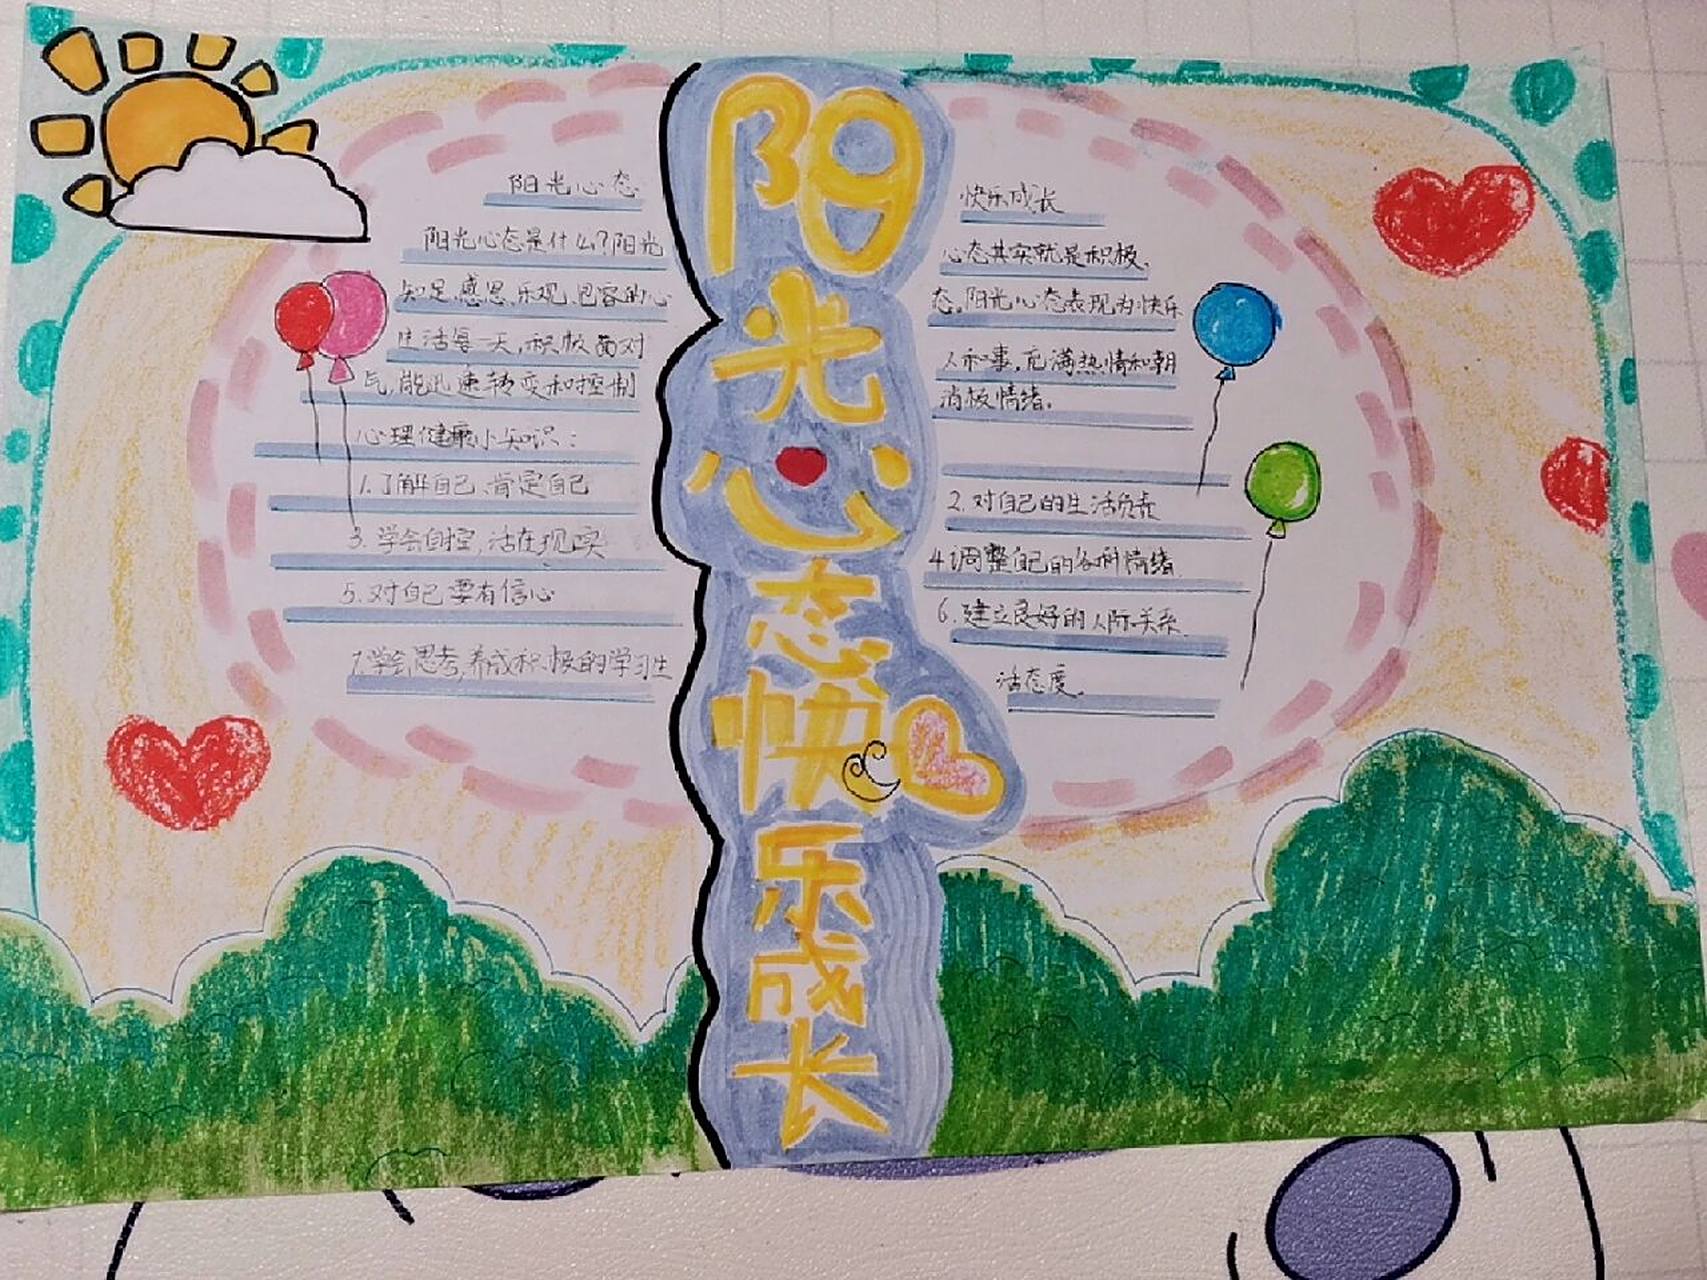 阳光心态快乐成长
阳光心态
阳光心态是什么?阳光
知足、感恩、乐观、包容的心
生活每一天,积极面对
气,能迅速转变和控制
心理健康小知识:
1.了解自己、肯定自己
3.学会自控,活在现实
5.对自己要有信心
7.学会思考,养成积极的学习生
快乐成长
心态其实就是积极、
态。阳光心态表现为快乐
人和事,充满热情和朝
消极情绪。
2.对自己的生活负责
4.调整自己的各种情绪
6.建立良好的人际关系
活态度。